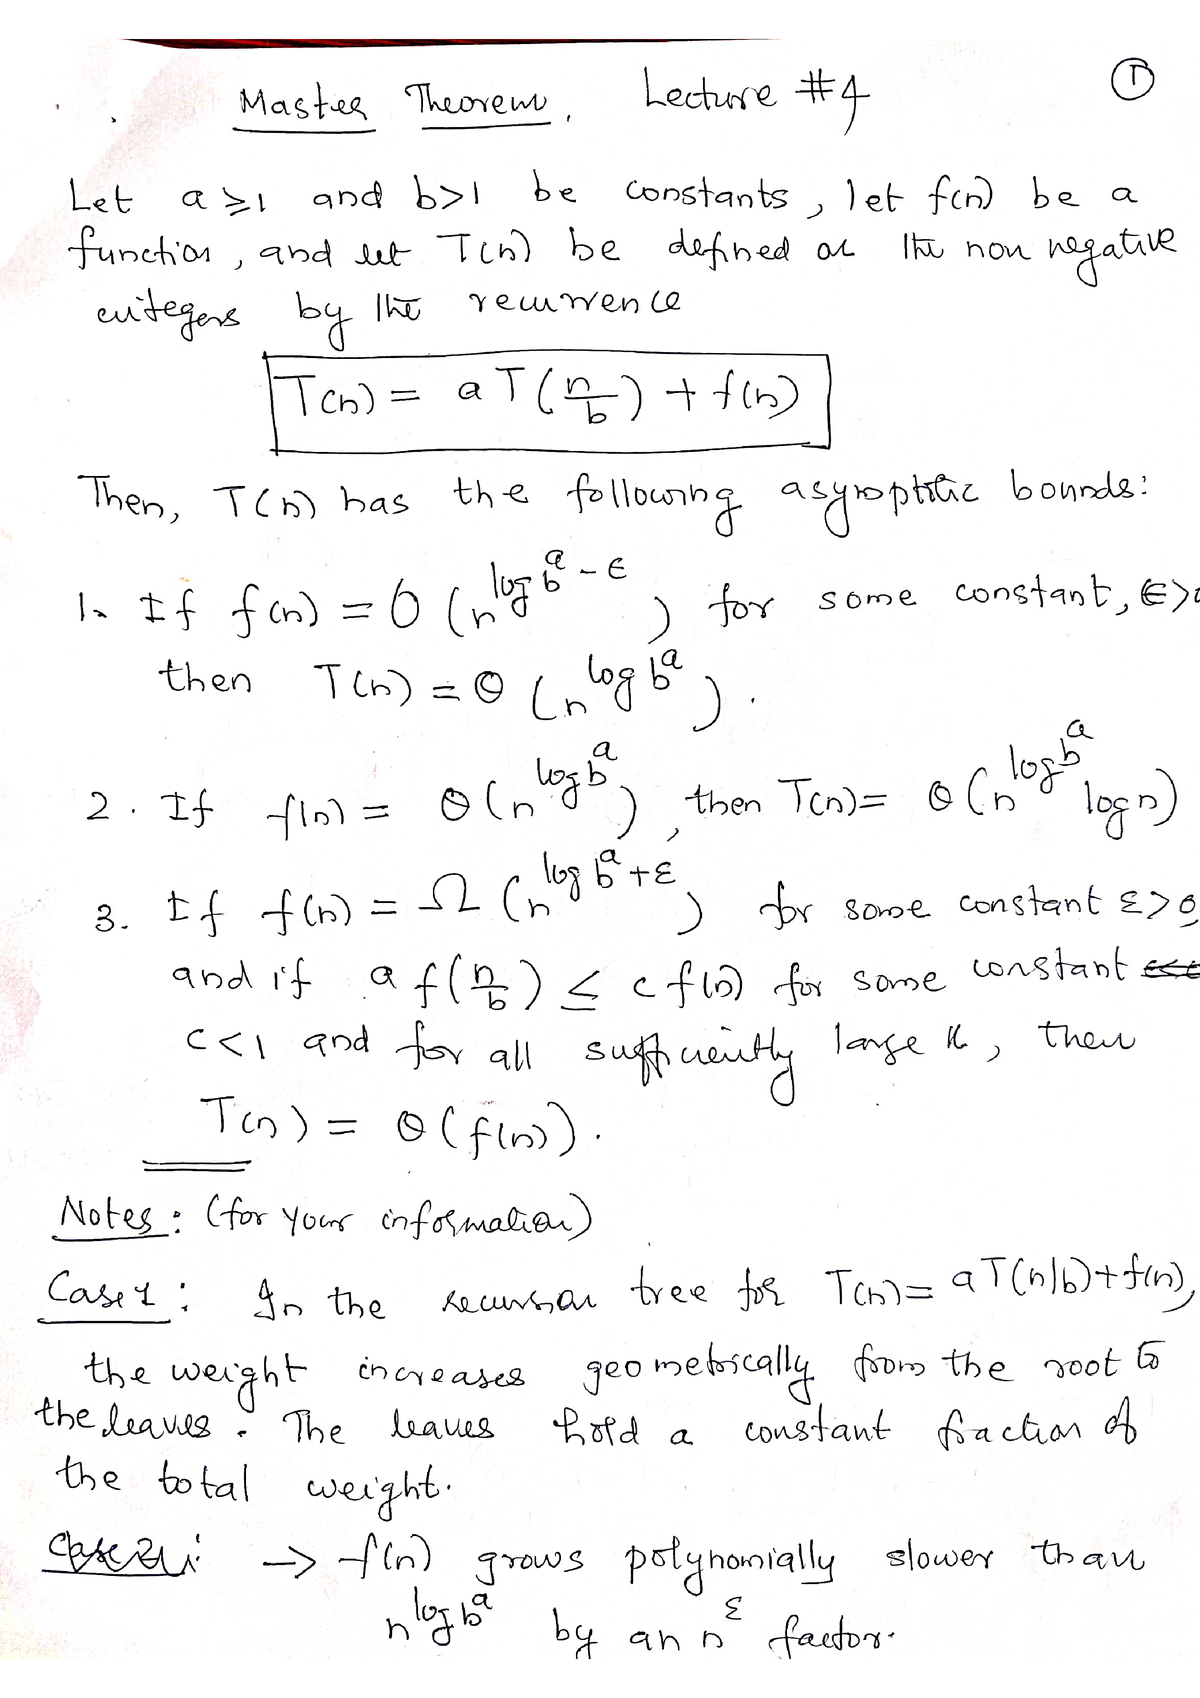 Master Theorem, Lecture #4 ①
Let a ≥ 1 and b > 1 be constants, let f(n) be a
function, and let T(n) be defined on the non negative
integers by the recurrence
T(n) = a T(n/b) + f(n)
Then, T(n) has the following asymptotic bounds:
1. If f(n) = O(n^{log_b a - ε}) for some constant, ε>0
then T(n) = Θ(n^{log_b a}).
2. If f(n) = Θ(n^{log_b a}), then T(n) = Θ(n^{log_b a} log n)
3. If f(n) = Ω(n^{log_b a + ε}) for some constant ε>0
and if a f(n/b) ≤ c f(n) for some constant
c<1 and for all sufficiently large n, then
T(n) = Θ(f(n)).
Notes: (for your information)
Case 1: In the recursion tree for T(n) = aT(n/b)+f(n),
the weight increases geometrically from the root to
the leaves. The leaves hold a constant fraction of
the total weight.
→ f(n) grows polynomially slower than
n^{log_b a} by an n^ε factor.